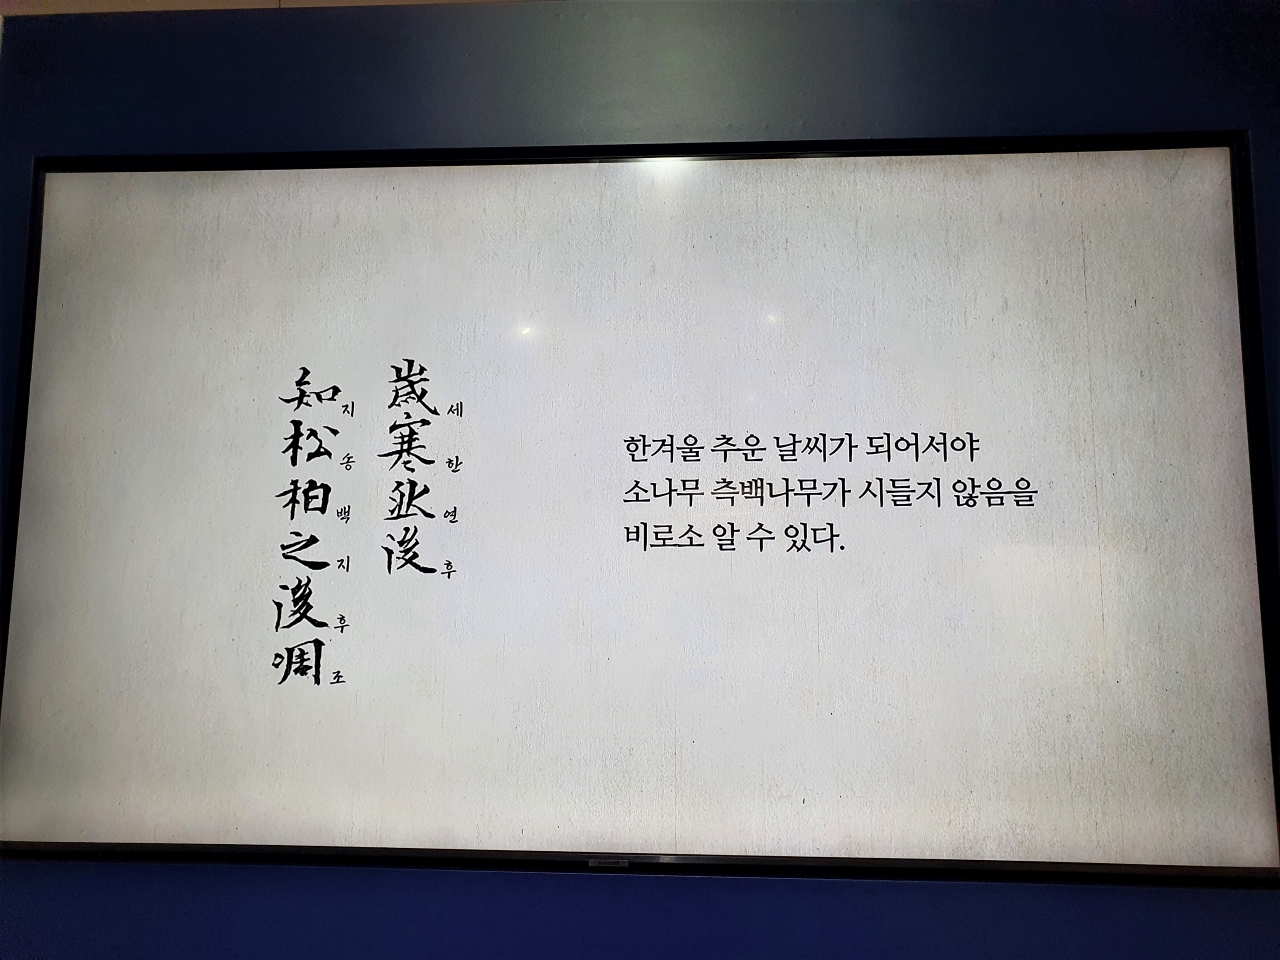 歲寒然後
세한연후
知松柏之後凋
지송백지후조
한겨울 추운 날씨가 되어서야
소나무 측백나무가 시들지 않음을
비로소 알 수 있다.